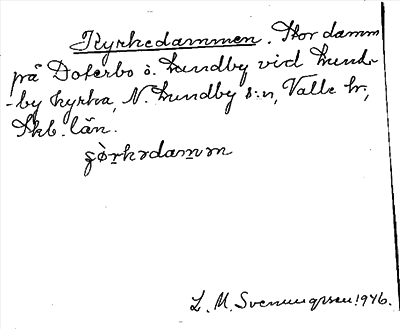 Kyrkedammen. Stor damm
på Doterbo ö. Lundby vid Lund-
-by kyrka, N. Lundby s:n, Valle hr,
Skb. län.
L. M. Svenungsson. 1946.